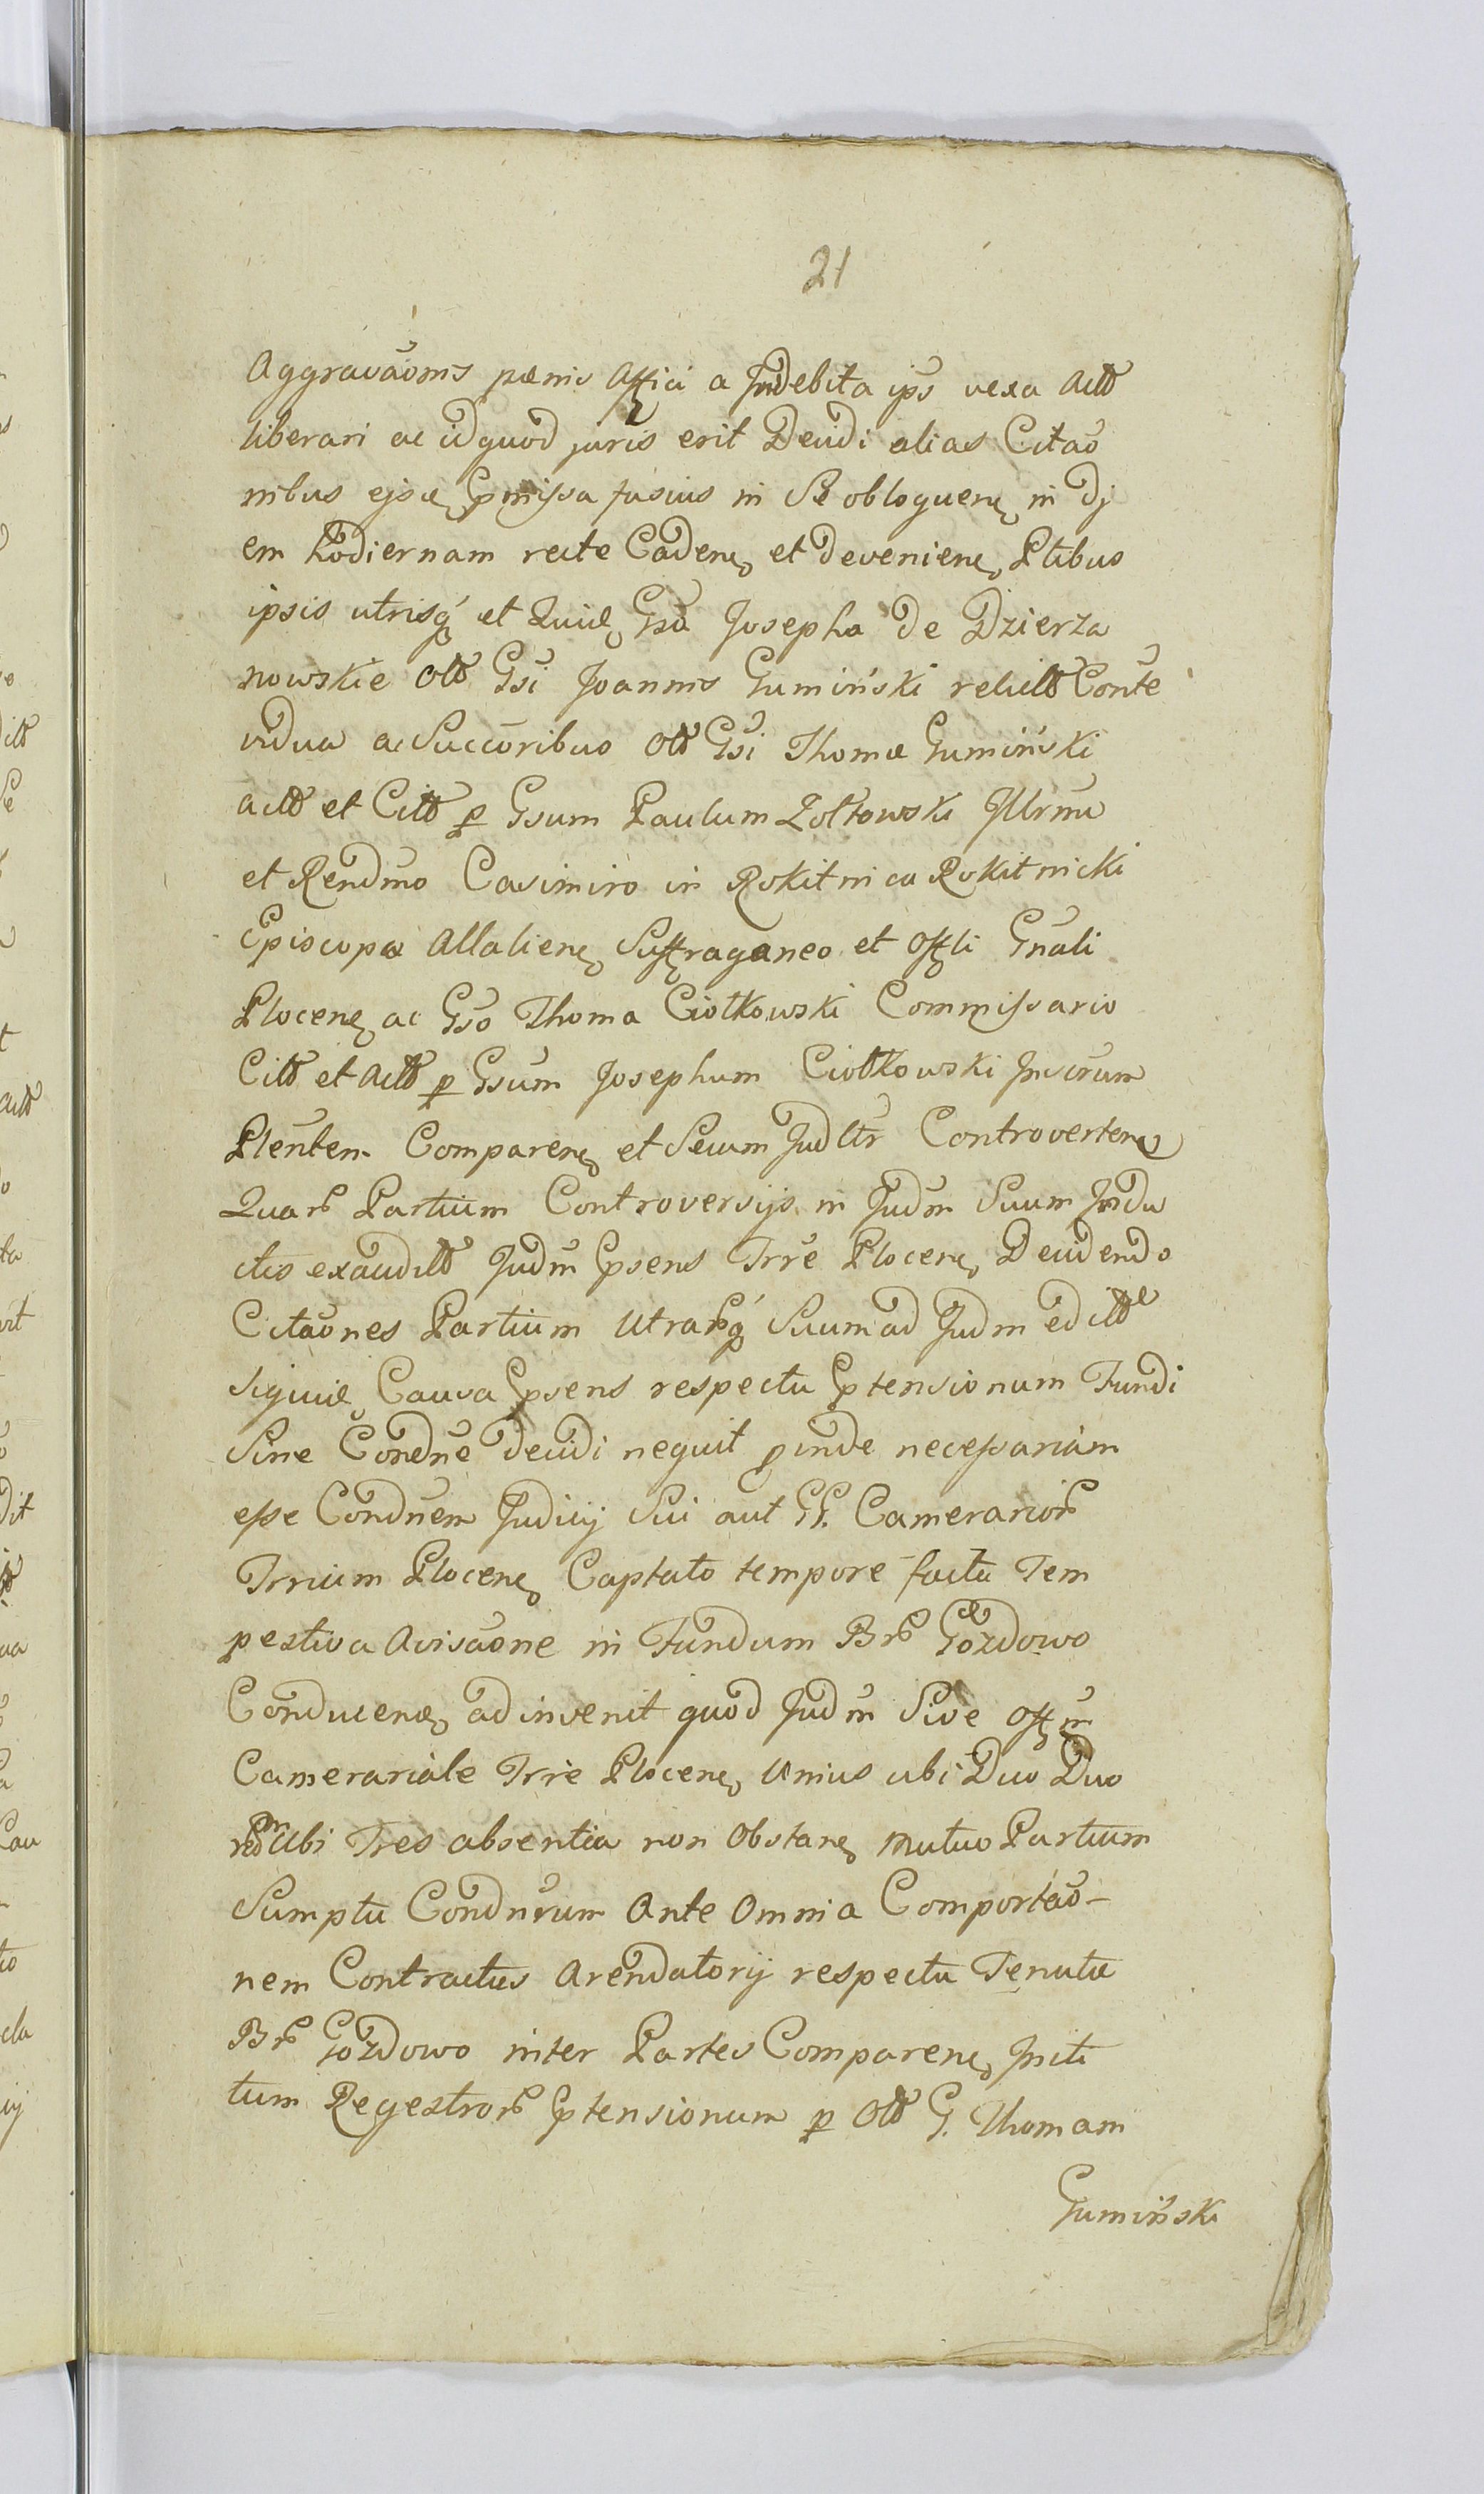 21
Aggravaõnis pænis affici a Indebita ips vexa actt
liberari ac id quod juris erit Decidi alias Citaõ
nibus ejsd pmissa fusius in Se obloquen in di
em hodiernam recte Caden et devenien Ptibus
ipsis utrisq et Quid Gsa Josepha de Dzierza
nowskie Olt Gsi Joannis Gumiński relict Conte
vidua ac Succoribus Olt Gsi Thomæ Gumiński
actt et Citt p Gsum Paulum Żółtowski Illrmu
et Rendmo Casimiro in Rokitnica Rokitnicki
Episcopo Allalien Suffraganeo et Offli Gnali
Plocen ac Gso Thoma Ciołkowski Commissario
Citt et actt p Gsum Josephum Ciołkowski Juscrum
Plenten Comparen et Secum Judltr Controverten
Quar Partium Controversijs in Judm Suum Indu
ctis exaudilt Judm Psens Trre Plocen Decidendo
Citaones Partium Utrarq Suum ad Judm edilt
Siquid Causa Psens respectu Ptensionum Fundi
Sine Condne decidi nequit pinde necessariam
esse Condnem Judicij Sui aut GG. Camerarior
Trrium Plocen Captato tempore facta Tem
pestiva Avisaone in Fundum Br Gozdowo
Conducend adinvenit quod Judm Sive Offm
Camerariale Trre Plocen Unius ubi Duo Duo
ubi Tres absentia non Obstan mutuo Partium
Sumptu Condnrum Ante Omnia Comportaõ-
nem Contractus Arendatorij respectu Tenutæ
Br Gozdowo inter Partes Comparen Initi
tum Regestror Ptensionum p Olt G. Thomam
Gumiński